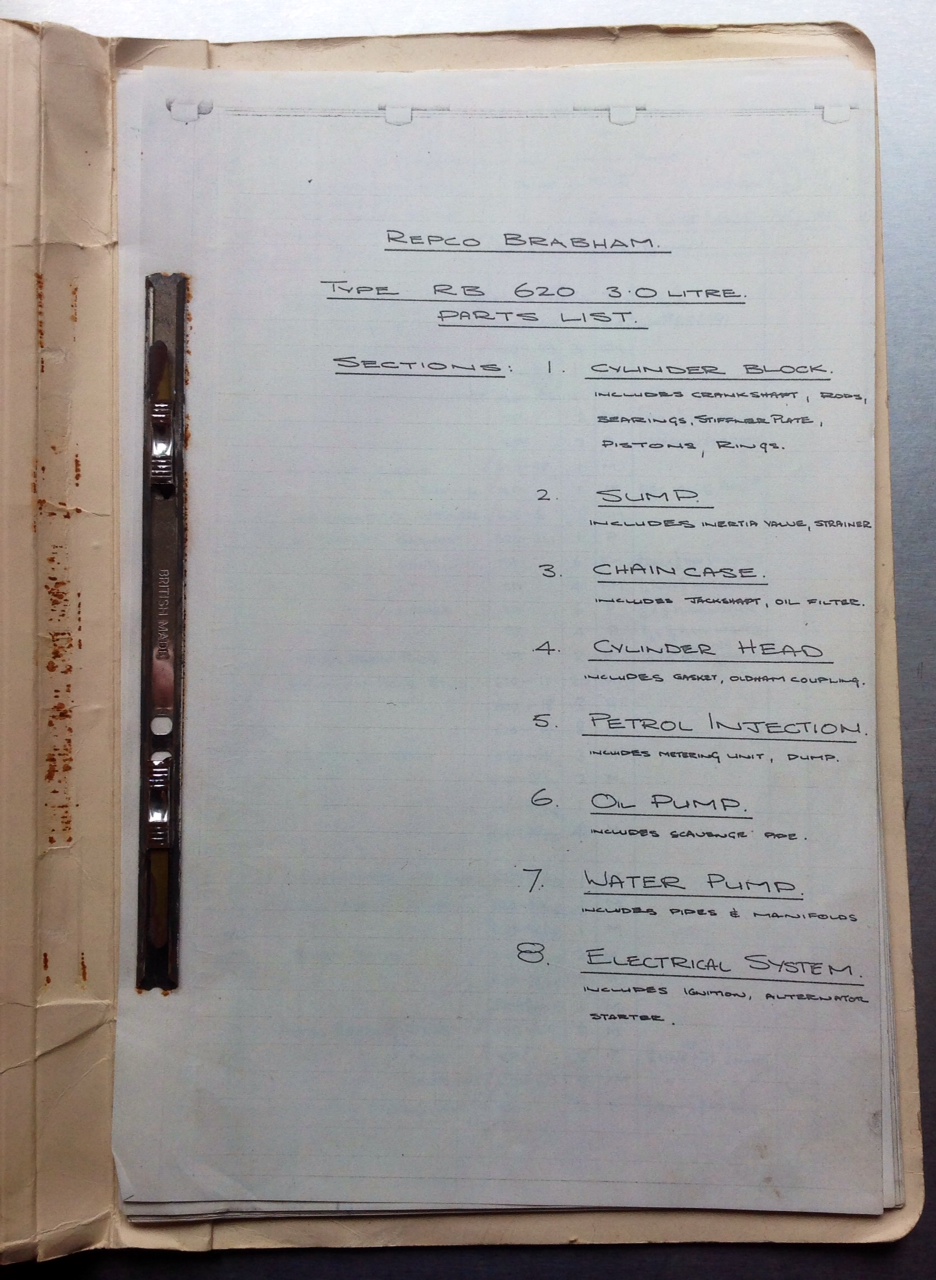 REPCO BRABHAM.
TYPE RB 620 3.0 LITRE.
PARTS LIST.
SECTIONS: 1. CYLINDER BLOCK.
INCLUDES CRANKSHAFT, RODS,
BEARINGS, STIFFNER PLATE,
PISTONS, RINGS.
2. SUMP.
INCLUDES INERTIA VALVE, STRAINER
3. CHAIN CASE.
INCLUDES JACKSHAFT, OIL FILTER.
4. CYLINDER HEAD
INCLUDES GASKET, OLDHAM COUPLING.
5. PETROL INJECTION.
INCLUDES METERING UNIT, PUMP.
6. OIL PUMP.
INCLUDES SCAVENGE PIPE.
7. WATER PUMP.
INCLUDES PIPES & MANIFOLDS
8. ELECTRICAL SYSTEM.
INCLUDES IGNITION, ALTERNATOR
STARTER.
BRITISH MADE